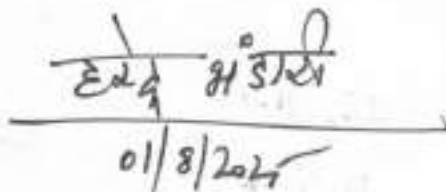 हरेन्द्र भंडारी
01/8/2025